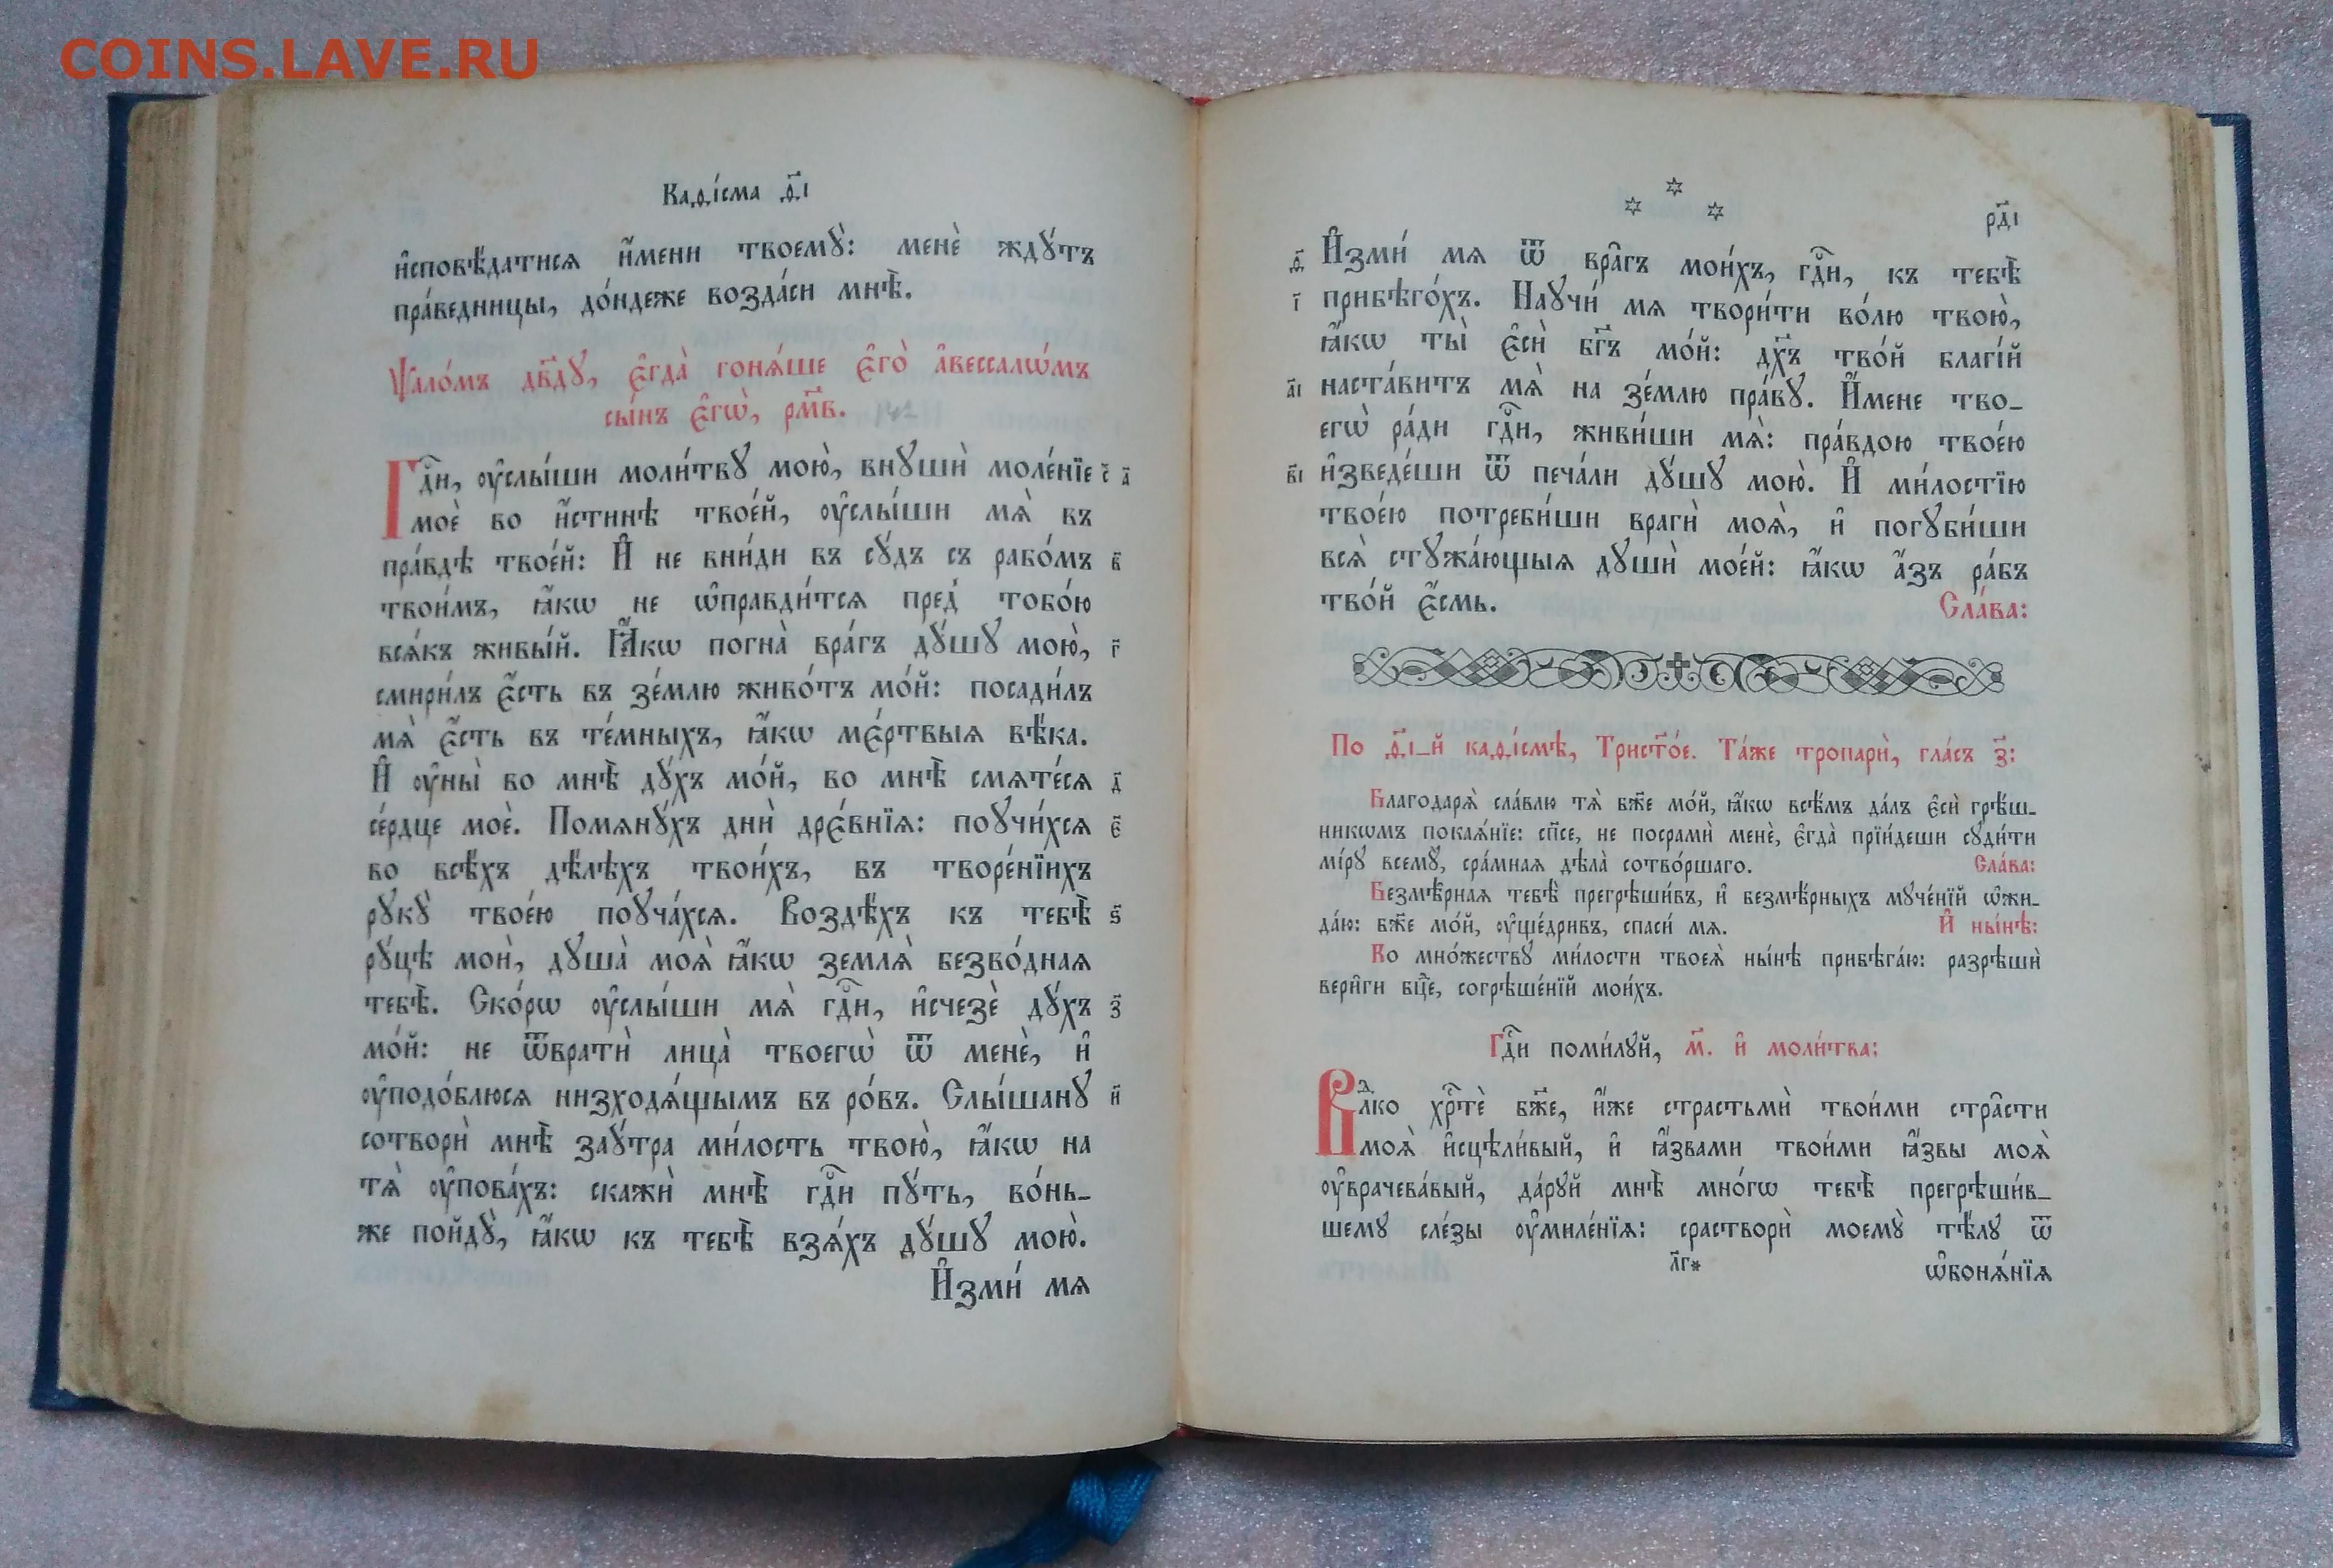 COINS.LAVE.RU
Каѳі́сма ѳ҃і
и҆сповѣ́датисѧ и҆́мени твоемꙋ̀: менѐ ждꙋ́тъ
пра́ведницы, до́ндеже возда́си мнѣ̀.
Ѱало́мъ дв҃дꙋ, є҆гда̀ гонѧ́ше є҆го̀ а҆вессалѡ́мъ
сы́нъ є҆гѡ̀, рм҃в. 142
Гдⷭ҇и, ᲂу҆слы́ши моли́твꙋ мою̀, внꙋшѝ моле́нїе с҃ а҃
моѐ во и҆́стинѣ твое́й, ᲂу҆слы́ши мѧ̀ въ
пра́вдѣ твое́й: И҆ не вни́ди въ сꙋ́дъ съ рабо́мъ в҃
твои́мъ, ꙗ҆́кѡ не ѡ҆правди́тсѧ пред̾ тобо́ю
всѧ́къ живы́й. Ꙗ҆́кѡ погна̀ вра́гъ дꙋ́шꙋ мою̀, г҃
смири́лъ є҆́сть въ зе́млю живо́тъ мо́й: посади́лъ
мѧ̀ є҆́сть въ те́мныхъ, ꙗ҆́кѡ мє́ртвыѧ вѣ́ка.
И҆ ᲂу҆ны̀ во мнѣ̀ дꙋ́хъ мо́й, во мнѣ̀ смѧте́сѧ д҃
се́рдце моѐ. Помѧнꙋ́хъ днѝ дрє́внїѧ: поꙋчи́хсѧ є҃
во всѣ́хъ дѣ́лѣхъ твои́хъ, въ творе́нїихъ
рꙋкꙋ̀ твоє́ю поꙋча́хсѧ. Воздѣ́хъ къ тебѣ̀ ѕ҃
рꙋ́цѣ моѝ, дꙋша̀ моѧ̀ ꙗ҆́кѡ землѧ̀ безво́днаѧ
тебѣ̀. Ско́рѡ ᲂу҆слы́ши мѧ̀ гдⷭ҇и, и҆счезѐ дꙋ́хъ з҃
мо́й: не ѿвратѝ лица̀ твоегѡ̀ ѿ менѐ, и҆
ᲂу҆подо́блюсѧ низходѧ́щымъ въ ро́въ. Слы́шанꙋ и҃
сотворѝ мнѣ̀ заꙋ́тра ми́лость твою̀, ꙗ҆́кѡ на
тѧ̀ ᲂу҆пова́хъ: скажѝ мнѣ̀ гдⷭ҇и пꙋ́ть, во́нь_
же пойдꙋ̀, ꙗ҆́кѡ къ тебѣ̀ взѧ́хъ дꙋ́шꙋ мою̀.
И҆зми́ мѧ
рд҃і
ѳ҃ И҆зми́ мѧ ѿ вра̑гъ мои́хъ, гдⷭ҇и, къ тебѣ̀
і҃ прибѣго́хъ. Наꙋчи́ мѧ твори́ти во́лю твою̀,
ꙗ҆́кѡ ты̀ є҆сѝ бг҃ъ мо́й: дх҃ъ тво́й благі́й
а҃і наста́витъ мѧ̀ на зе́млю пра́вꙋ. И҆́мене тво_
егѡ̀ ра́ди гдⷭ҇и, живи́ши мѧ̀: пра́вдою твое́ю
в҃і и҆зведе́ши ѿ печа́ли дꙋ́шꙋ мою̀. И҆ ми́лостїю
твое́ю потреби́ши врагѝ моѧ̀, и҆ погꙋби́ши
всѧ̀ стꙋжа́ющыѧ дꙋшѝ мое́й: ꙗ҆́кѡ а҆́зъ ра́бъ
тво́й є҆́смь. Сла́ва:
По ѳ҃і_й каѳі́смѣ, Трист҃о́е. Та́же тропарѝ, гла́съ з҃:
Благодарѧ̀ сла́влю тѧ̀ бж҃е мо́й, ꙗ҆́кѡ всѣ̑мъ да́лъ є҆сѝ грѣ́ш_
никѡмъ покаѧ́нїе: сп҃се, не посрамѝ менѐ, є҆гда̀ прїи́деши сꙋди́ти
мі́рꙋ всемꙋ̀, сра́мнаѧ дѣла̀ сотво́ршаго. Сла́ва:
Безмѣ̑рнаѧ тебѣ̀ прегрѣши́въ, и҆ безмѣ́рныхъ мꙋче́нїй ѡ҆жи_
да́ю: бж҃е мо́й, ᲂу҆ще́дривъ, спаси́ мѧ. И҆ ны́нѣ:
Ко мно́жествꙋ ми́лости твоеѧ̀ ны́нѣ прибѣга́ю: разрѣшѝ
вери̑ги бцⷣе, согрѣше́нїй мои́хъ.
Гдⷭ҇и поми́лꙋй, м҃. и҆ моли́тва:
Влⷣко хрⷭ҇тѐ бж҃е, и҆́же страстьмѝ твои́ми стра̑сти
моѧ̀ и҆сцѣли́вый, и҆ ꙗ҆́звами твои́ми ꙗ҆́звы моѧ̀
ᲂу҆врачева́вый, да́рꙋй мнѣ̀ мно́гѡ тебѣ̀ прегрѣши́в_
шемꙋ сле́зы ᲂу҆миле́нїѧ: срастворѝ моемꙋ̀ тѣ́лꙋ ѿ
л҃г* ѡ҆бонѧ́нїѧ